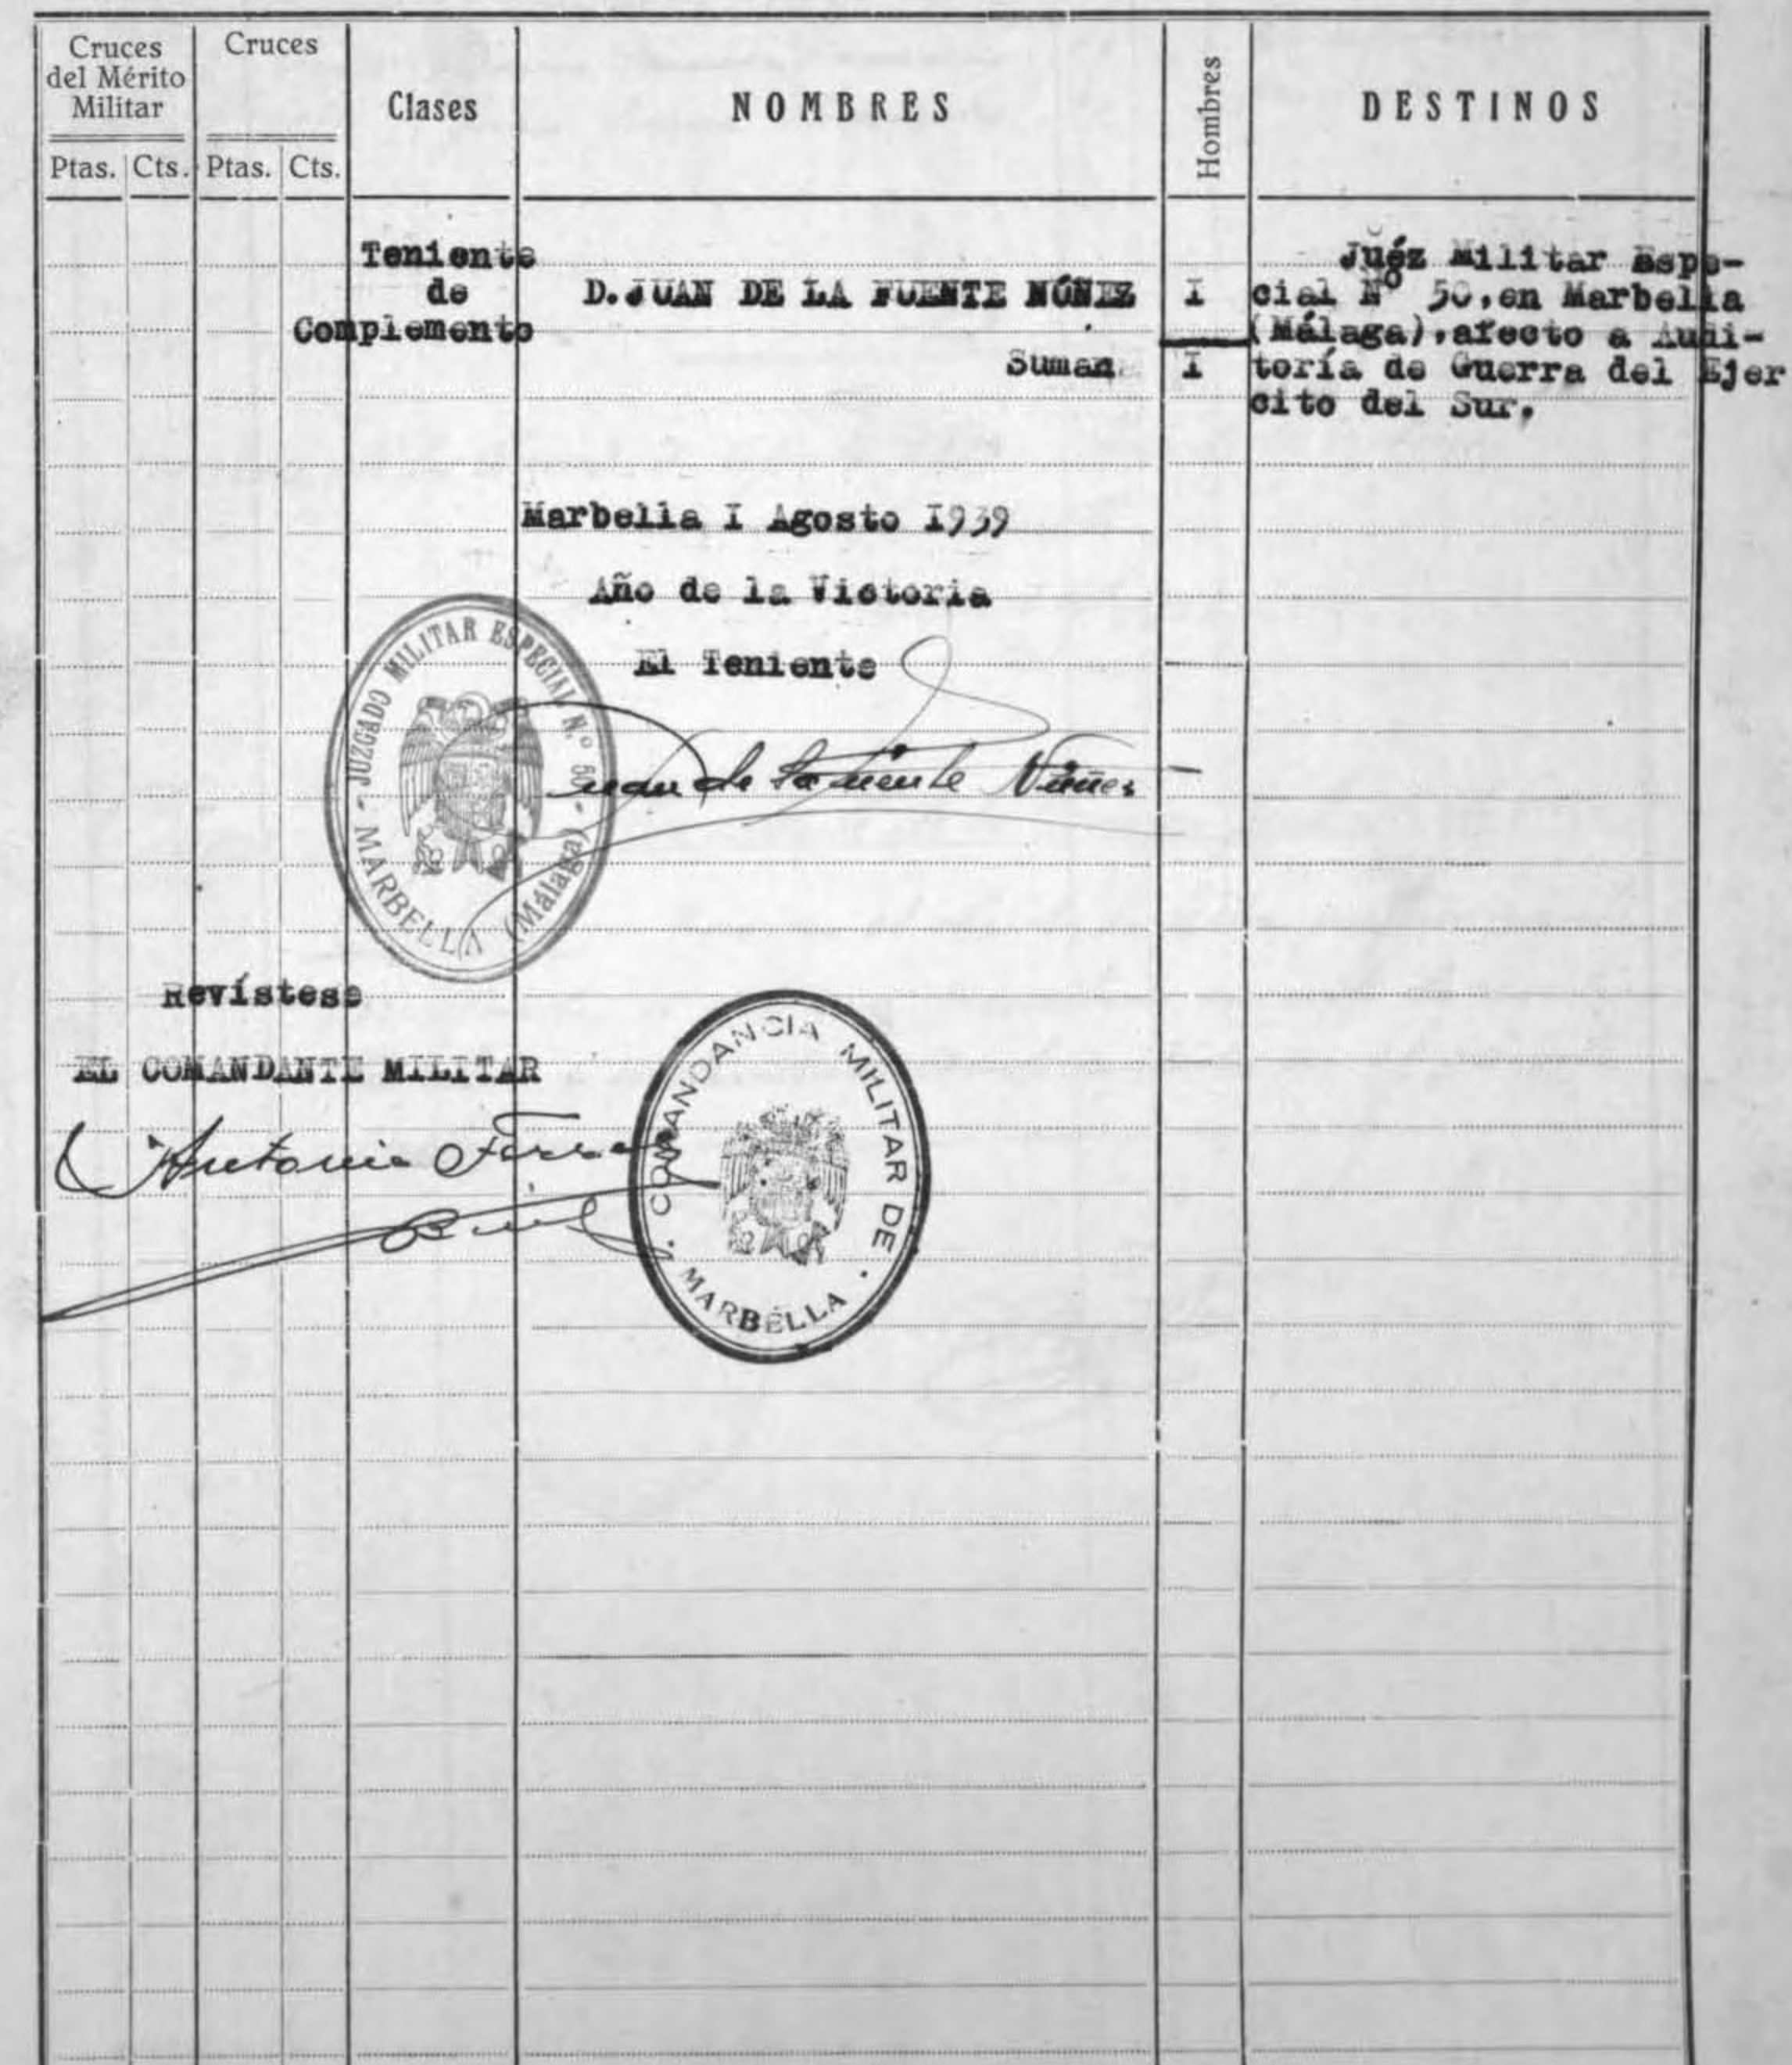 Cruces del Mérito Militar
Cruces
Clases
NOMBRES
Hombres
DESTINOS
Ptas. Cts. Ptas. Cts.
Teniente
de
Complemento
D. JUAN DE LA FUENTE NÚÑEZ
I
Suman I
Juéz Militar Espe-
cial Nº 50, en Marbella
(Málaga), afecto a Audi-
toría de Guerra del Ejer
cito del Sur.
Marbella I Agosto I939
Año de la Victoria
El Teniente
Juan de la Fuente Núñez
JUZGADO MILITAR ESPECIAL N.º 50 - MARBELLA (Málaga)
Revístese
EL COMANDANTE MILITAR
Antonio
COMANDANCIA MILITAR DE MARBELLA